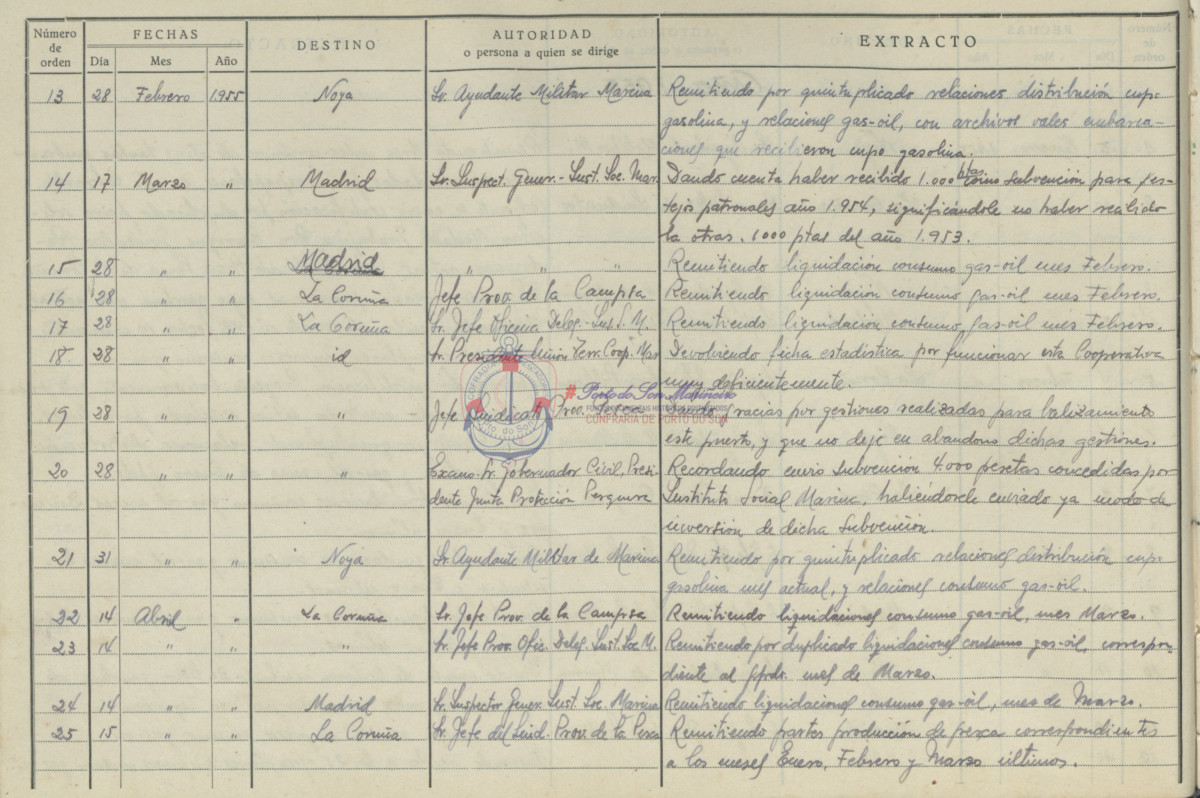 Número de orden FECHAS DESTINO AUTORIDAD o persona a quien se dirige EXTRACTO
Dia Mes Año
13 28 Febrero 1.955 Noya Sr. Ayudante Militar Marina Remitiendo por quintuplicado relaciones distribución cupo
gasolina, y relaciones gas-oil, con archivos vales embarca-
ciones que recibieron cupo gasolina.
14 17 Marzo " Madrid Sr. Inspect. Gener.- Inst. Soc. Mar. Dando cuenta haber recibido 1.000 ptas como Subvención para fes-
tejos patronales año 1.954, significándole no haber recibido
la otras. 1000 ptas del año 1.953.
15 28 " " Madrid " " " Remitiendo liquidación consumo gas-oil mes Febrero.
16 28 " " La Coruña Jefe Prov. de la Campsa Remitiendo liquidación consumo gas-oil mes Febrero.
17 28 " " La Coruña Sr. Jefe Oficina Deleg.- Inst. S. M. Remitiendo liquidación consumo gas-oil mes Febrero.
18 28 " " id Sr. Presidente Unión Terr. Coop. Mar Devolviendo ficha estadistica por funcionar esta Cooperativa
muy deficientemente.
19 28 " " " Jefe Sindicato Prov. Pesca Dando gracias por gestiones realizadas para balizamiento
este puerto, y que no deje en abandono dichas gestiones.
20 28 " " " Excmo. Sr. Gobernador Civil, Presi- Recordando envio Subvención 4.000 pesetas concedidas por
dente Junta Protección Pesquera Instituto Social Marina, haliéndosele enviado ya modo de
inversión de dicha Subvención.
21 31 " " Noya Sr. Ayudante Militar de Marina Remitiendo por quintuplicado relaciones distribución cupo
gasolina mes actual, y relaciones consumo gas-oil.
22 14 Abril " La Coruña Sr. Jefe Prov. de la Campsa Remitiendo liquidaciones consumo gas-oil, mes Marzo.
23 14 " " Sr. Jefe Prov. Ofic. Deleg. Inst. Soc. M. Remitiendo por duplicado liquidaciones consumo gas-oil, correspon-
diente al mes de Marzo.
24 14 " " Madrid Sr. Inspector Gener. Inst. Soc. Marina Remitiendo liquidaciones consumo gas-oil, mes de Marzo.
25 15 " " La Coruña Sr. Jefe del Sind. Prov. de la Pesca Remitiendo partes producción de pesca correspondientes
a los meses Enero, Febrero y Marzo últimos.
COFRADIA DE PESCADORES
Pto. do Son
# Porto do Son Mariñeiro
CONFRARIA DE PORTO DO SON